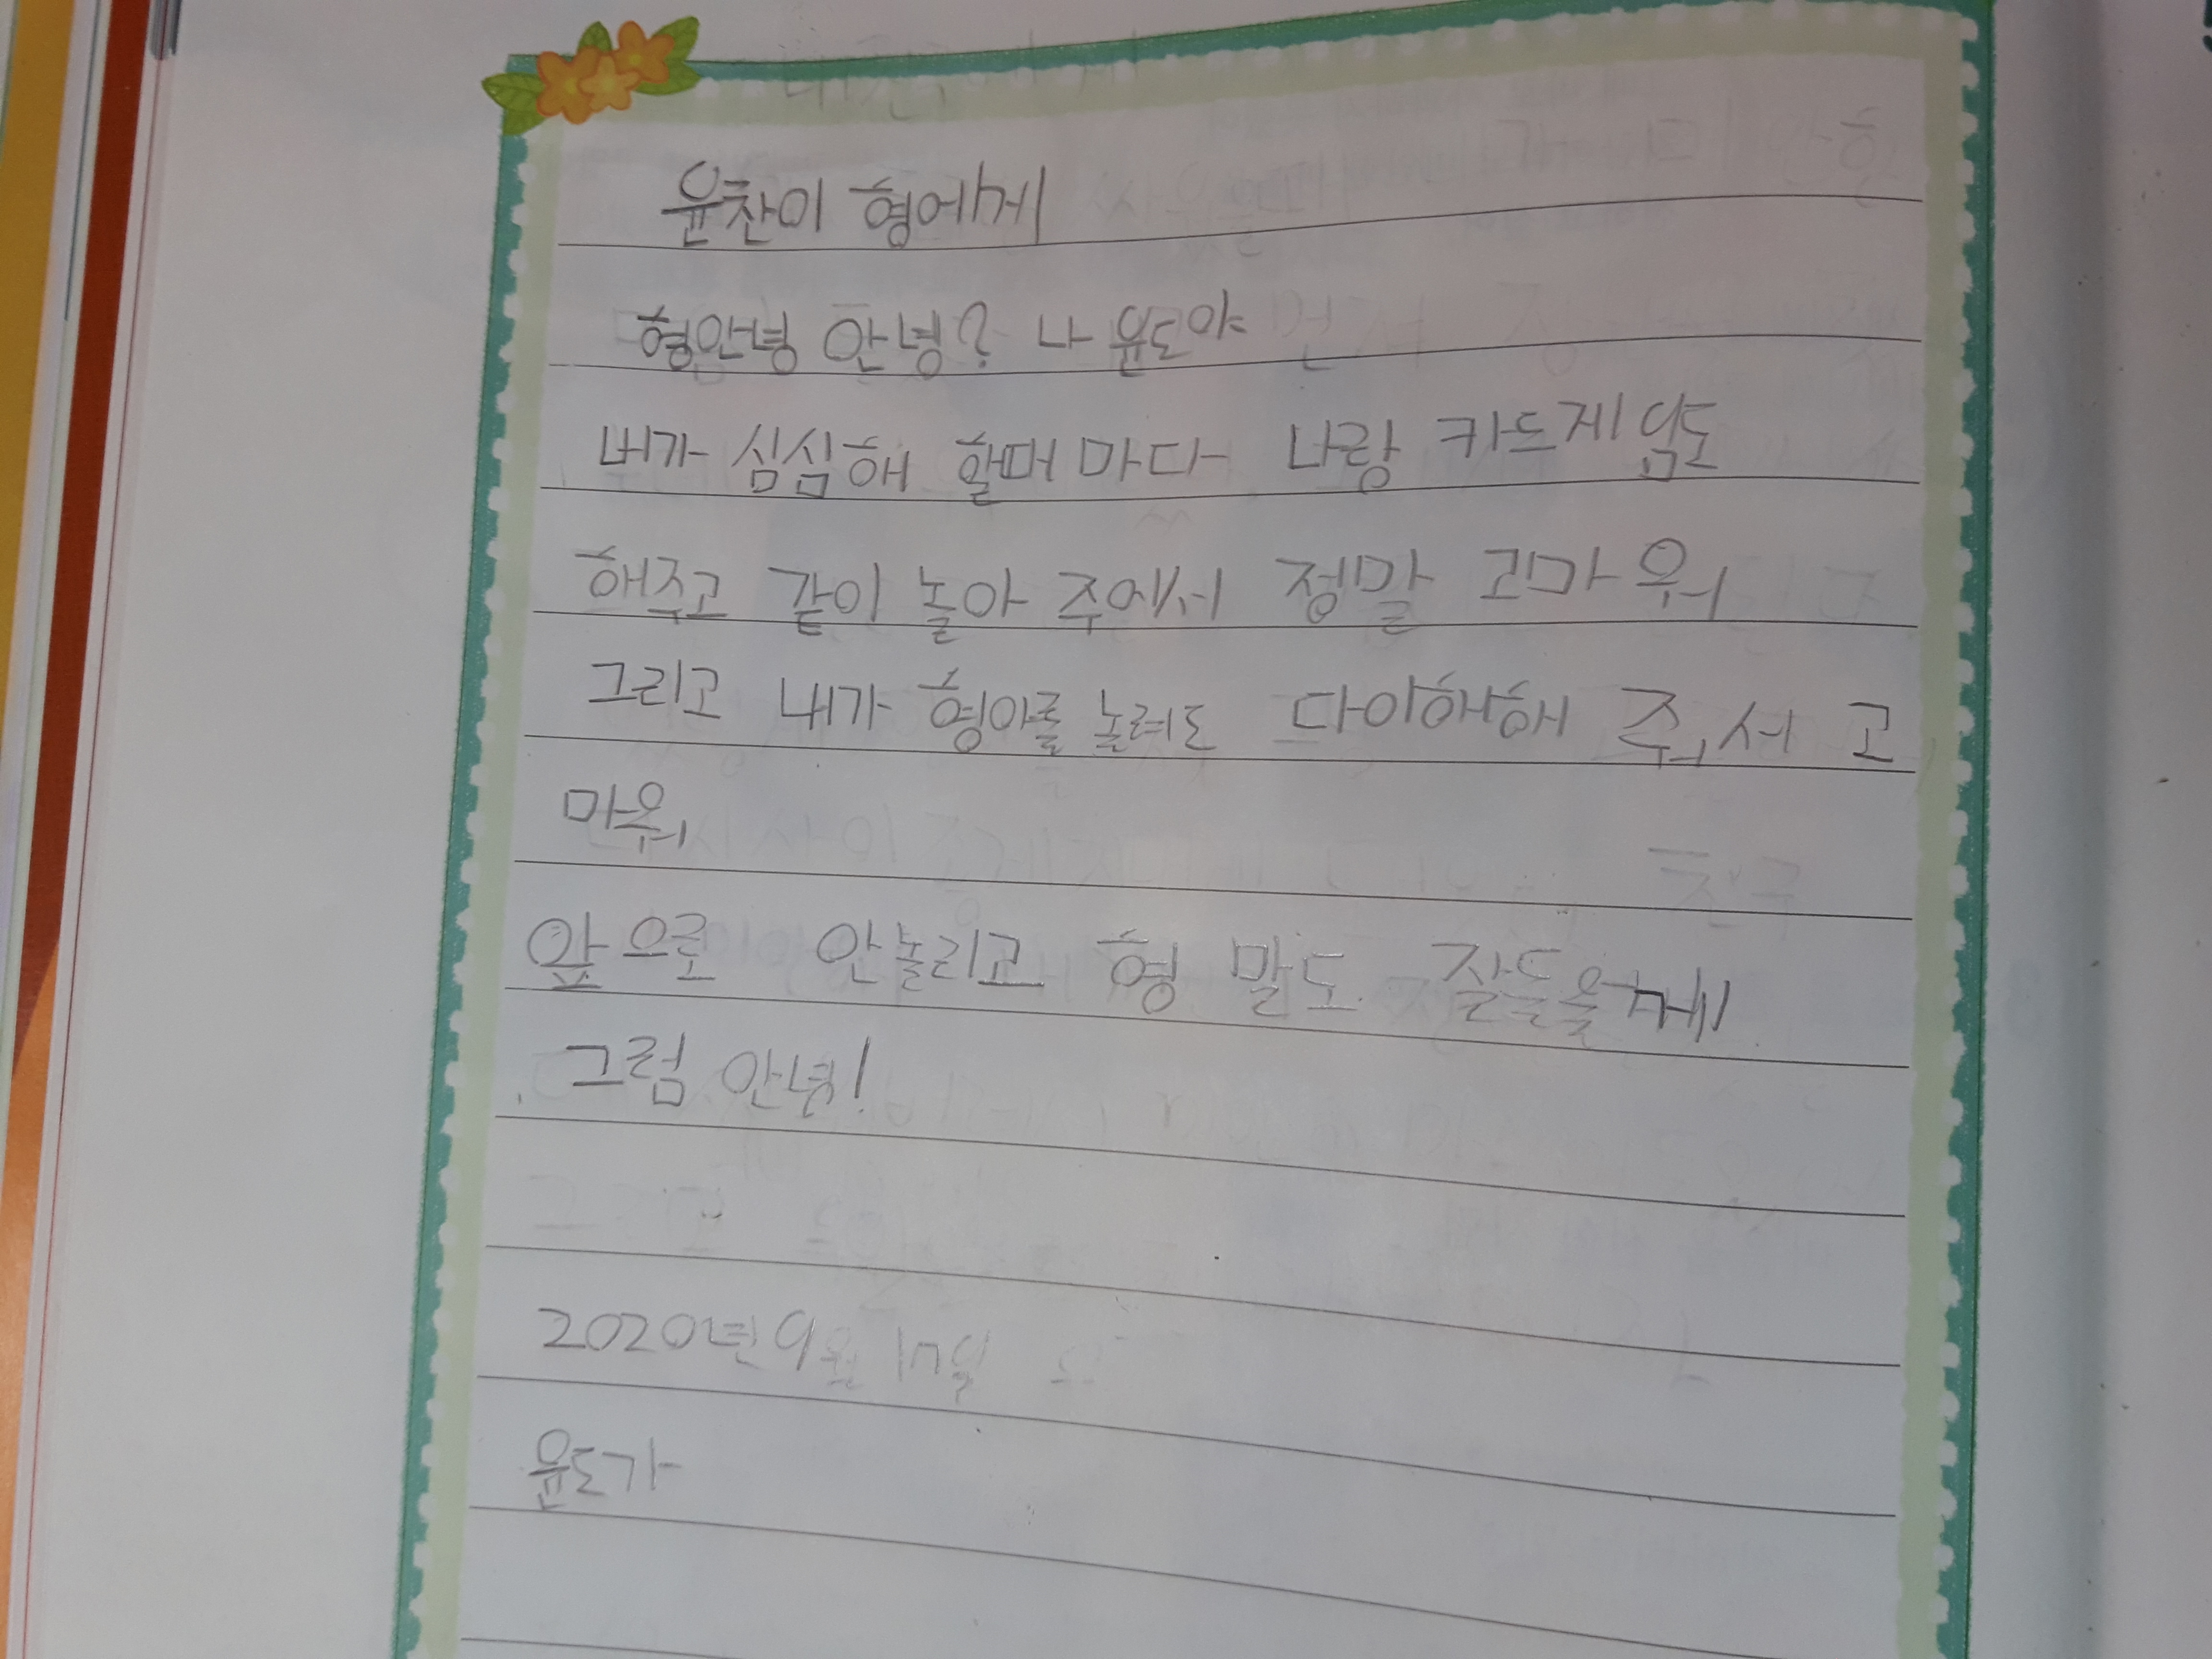 윤찬이 형에게
형안녕 안녕? 나 윤도야
내가 심심해 할때마다 나랑 카드게임도
해주고 같이 놀아 주에서 정말 고마워
그리고 내가 형아를 놀려도 다이해해 줘서 고
마워
앞으로 안놀리고 형 말도 잘들을게
그럼 안녕!
2020년 9월 17일
윤도가